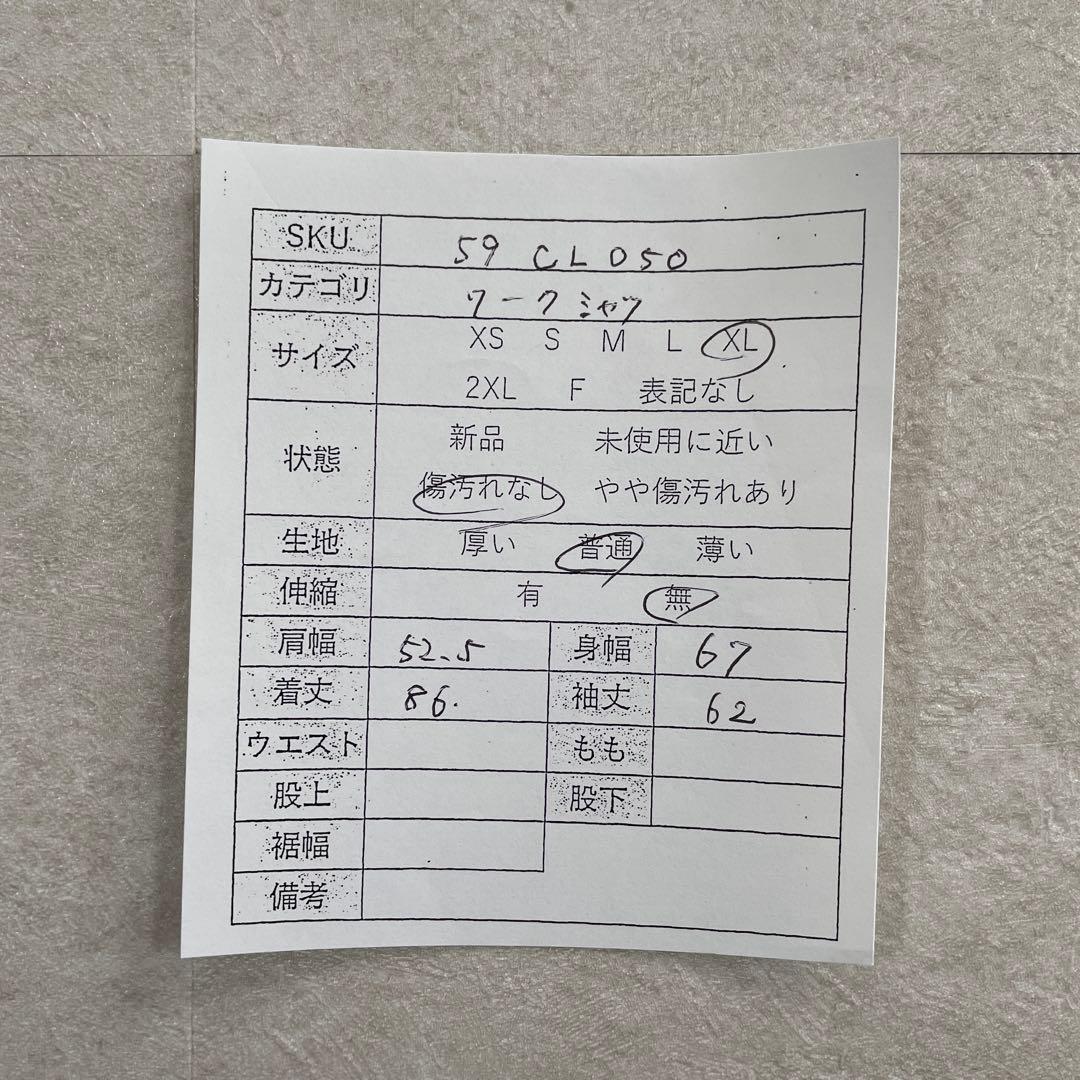 SKU 59 CL050
カテゴリ ワークシャツ
サイズ XS S M L XL
2XL F 表記なし
状態 新品 未使用に近い
傷汚れなし やや傷汚れあり
生地 厚い 普通 薄い
伸縮 有 無
肩幅 52.5 身幅 67
着丈 86. 袖丈 62
ウエスト もも
股上 股下
裾幅
備考